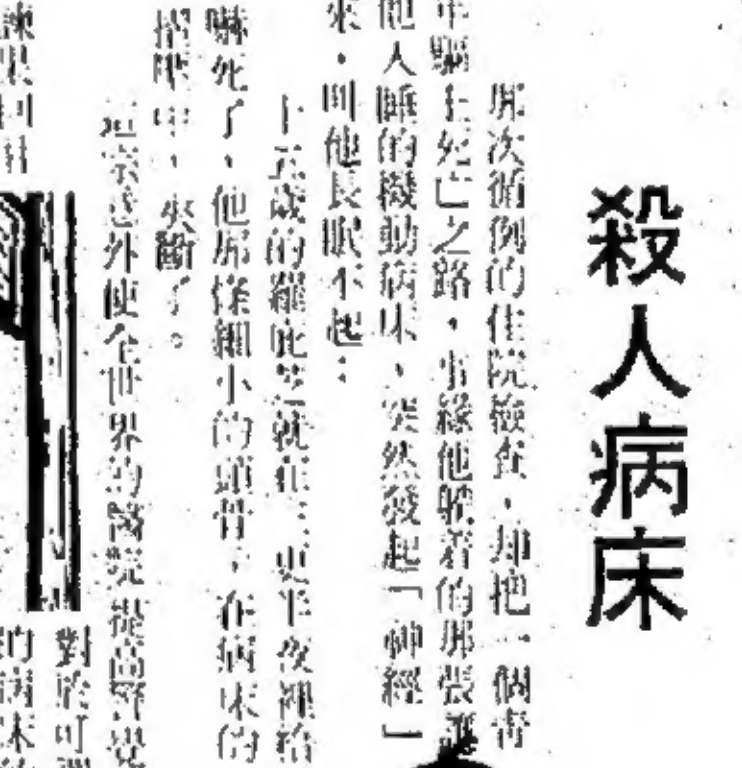 殺人病床
那次循例的住院檢查，却把一個青
年驅上死亡之路，事緣他躺着的那張讓
他人睡的機動病床，突然發起「神經」
來，叫他長眠不起…
十五歲的羅庇芝就在三更半夜裡給
嚇死了，他那條細小的頭骨，在病床的
摺床中，夾斷了。
這宗意外使全世界的醫院提高警覺
對於可
的病床